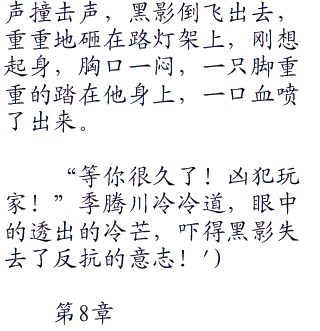 声撞击声，黑影倒飞出去，
重重地砸在路灯架上，刚想
起身，胸口一闷，一只脚重
重的踏在他身上，一口血喷
了出来。
“等你很久了！凶犯玩
家！”季腾川冷冷道，眼中
的透出的冷芒，吓得黑影失
去了反抗的意志！')
第8章